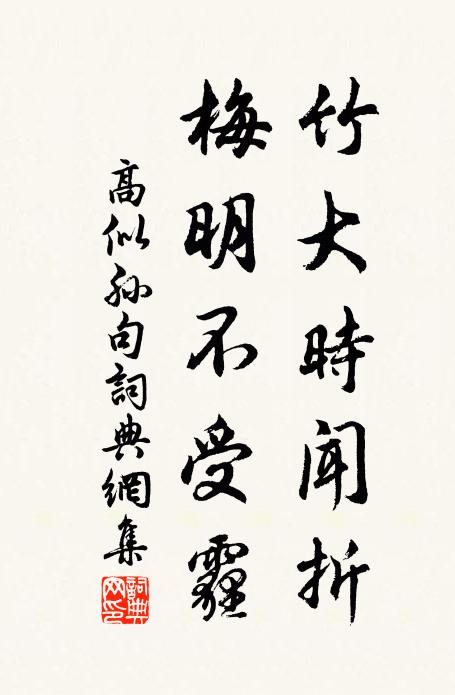 竹大時聞折
梅明不受霾
高似孫句詞典網集
詞典网印